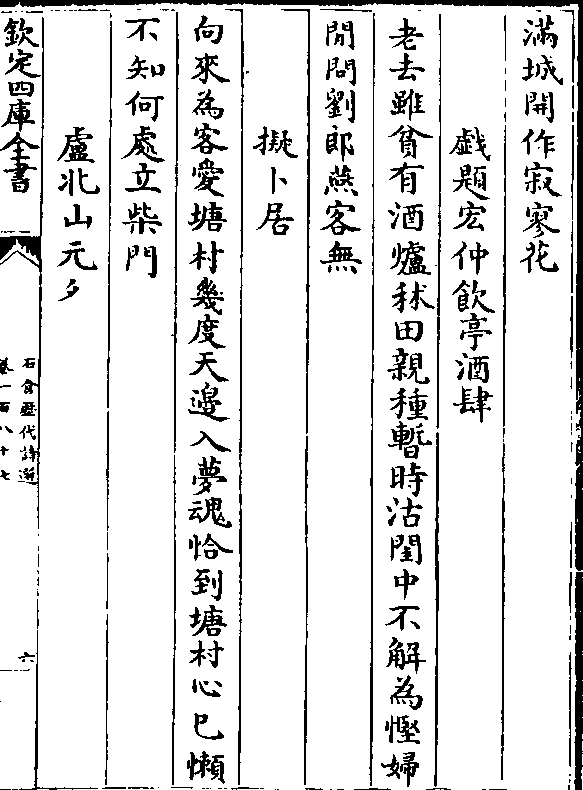 滿城開作寂寥花
戯題宏仲飲亭酒肆
老去雖貧有酒爐秫田親種暫時沽閨中不解為慳婦
閒問劉郎燕客無
擬卜居
向來為客愛塘村幾度天邉入夢魂恰到塘村心已懶
不知何處立柴門
盧北山元夕
欽定四庫全書
石倉歴代詩選
卷一百八十七
六